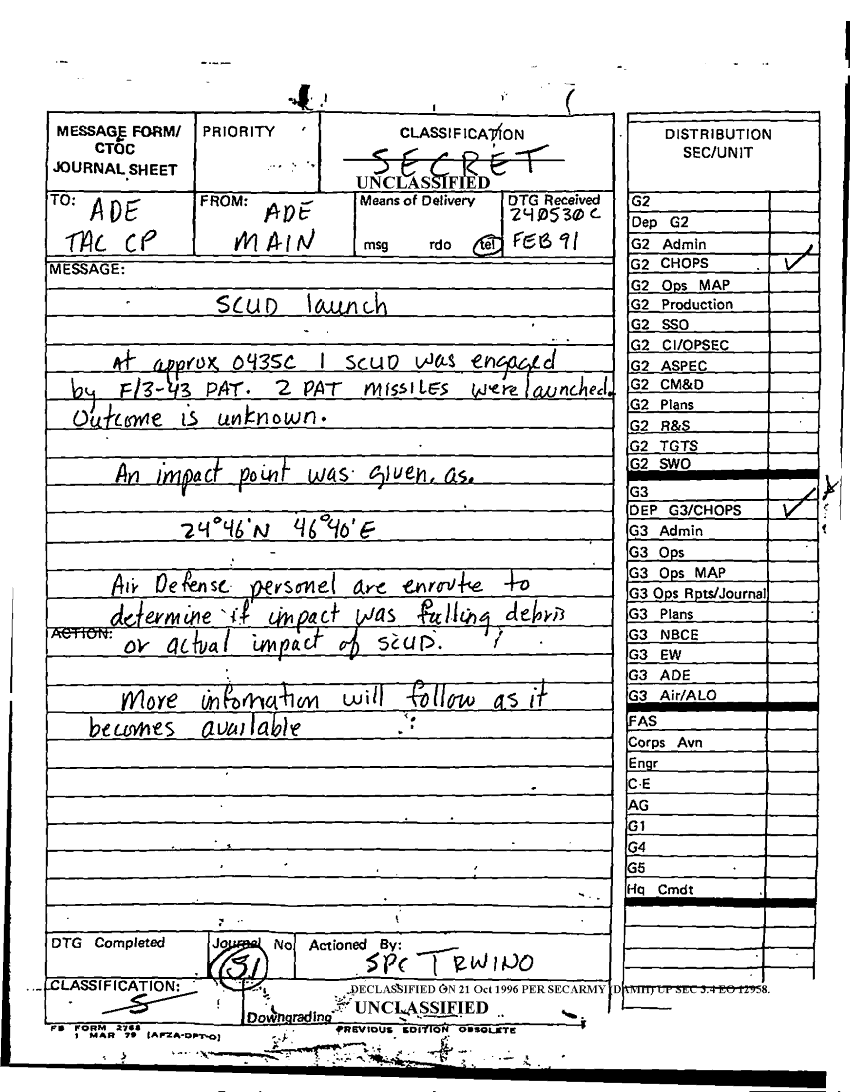 MESSAGE FORM/
CTOC
JOURNAL SHEET
PRIORITY
CLASSIFICATION
SECRET
UNCLASSIFIED
TO: ADE
TAC CP
FROM: ADE
MAIN
Means of Delivery
msg rdo tel
DTG Received
240530C
FEB 91
MESSAGE:
SCUD launch
At approx 0435C 1 SCUD was engaged
by F/3-43 PAT. 2 PAT MISSILES were launched.
Outcome is unknown.
An impact point was given. as.
24°46'N 46°40'E
Air Defense personel are enroute to
determine if impact was falling debris
ACTION: or actual impact of SCUD.
More infomation will follow as it
becomes available
DTG Completed
Journal No
31
Actioned By:
SPC
CLASSIFICATION:
S
Downgrading
DECLASSIFIED ON 21 Oct 1996 PER SECARMY (DAMH) UP SEC 3.4 EO 12958.
UNCLASSIFIED
FB FORM 2768
1 MAR 79 (AFZA-DPT-O)
PREVIOUS EDITION OBSOLETE
DISTRIBUTION
SEC/UNIT
G2
Dep G2
G2 Admin
G2 CHOPS ✓
G2 Ops MAP
G2 Production
G2 SSO
G2 CI/OPSEC
G2 ASPEC
G2 CM&D
G2 Plans
G2 R&S
G2 TGTS
G2 SWO
G3
DEP G3/CHOPS ✓
G3 Admin
G3 Ops
G3 Ops MAP
G3 Ops Rpts/Journal
G3 Plans
G3 NBCE
G3 EW
G3 ADE
G3 Air/ALO
FAS
Corps Avn
Engr
C-E
AG
G1
G4
G5
Hq Cmdt